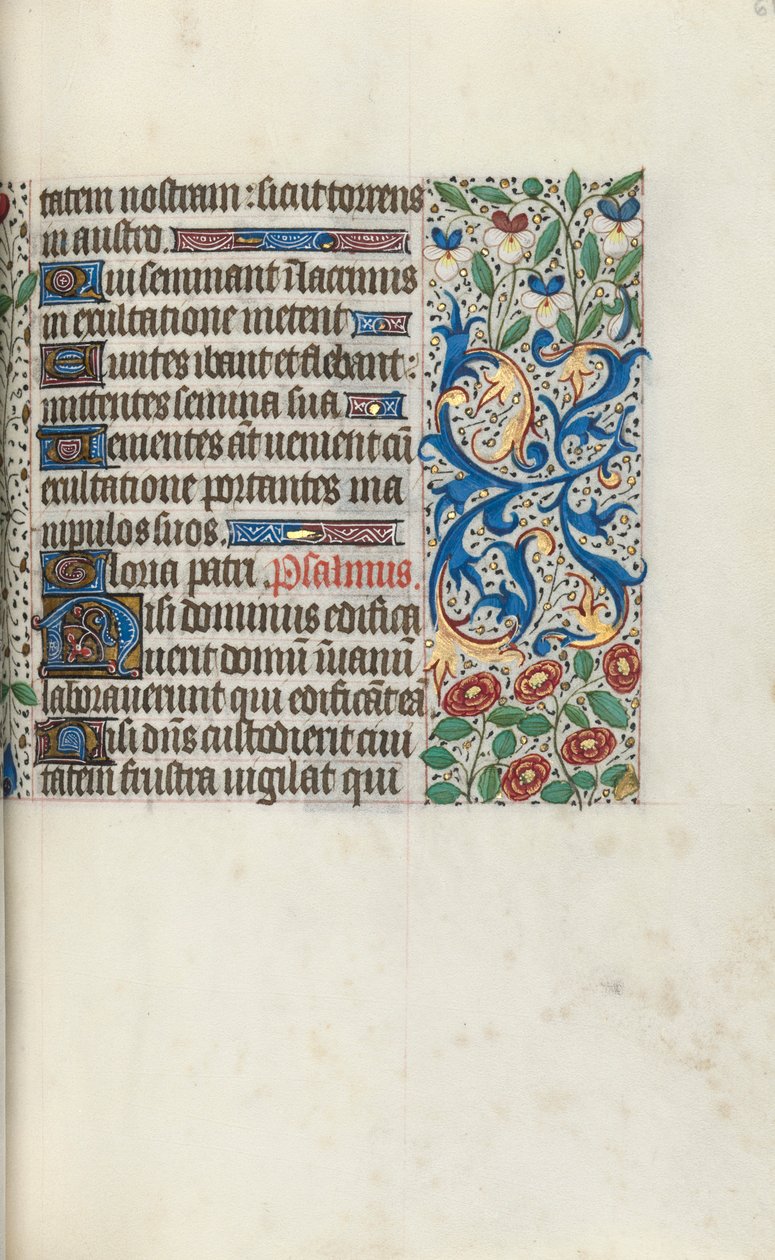 tatem nostram : sicut torrens
in austro.
Qui seminant ī lacrimis
in exultatione metent
Euntes ibant et flebant :
mittentes semina sua
Uenientes aūt uenient cū
exultatione portantes ma
nipulos suos.
Gloria patri. Psalmus.
Nisi dominus edifica
uerit domū ī uanū
laborauerunt qui edificāt eā
Nisi dn̄s custodierit ciui
tatem frustra uigilat qui